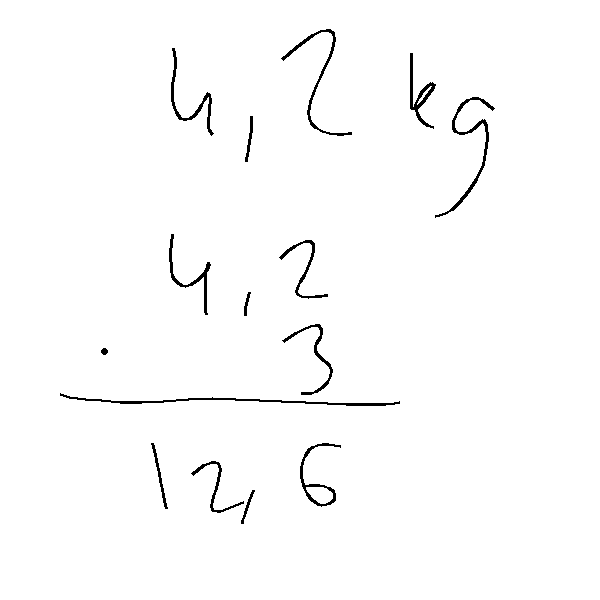 4,2 kg
4,2
· 3
12,6